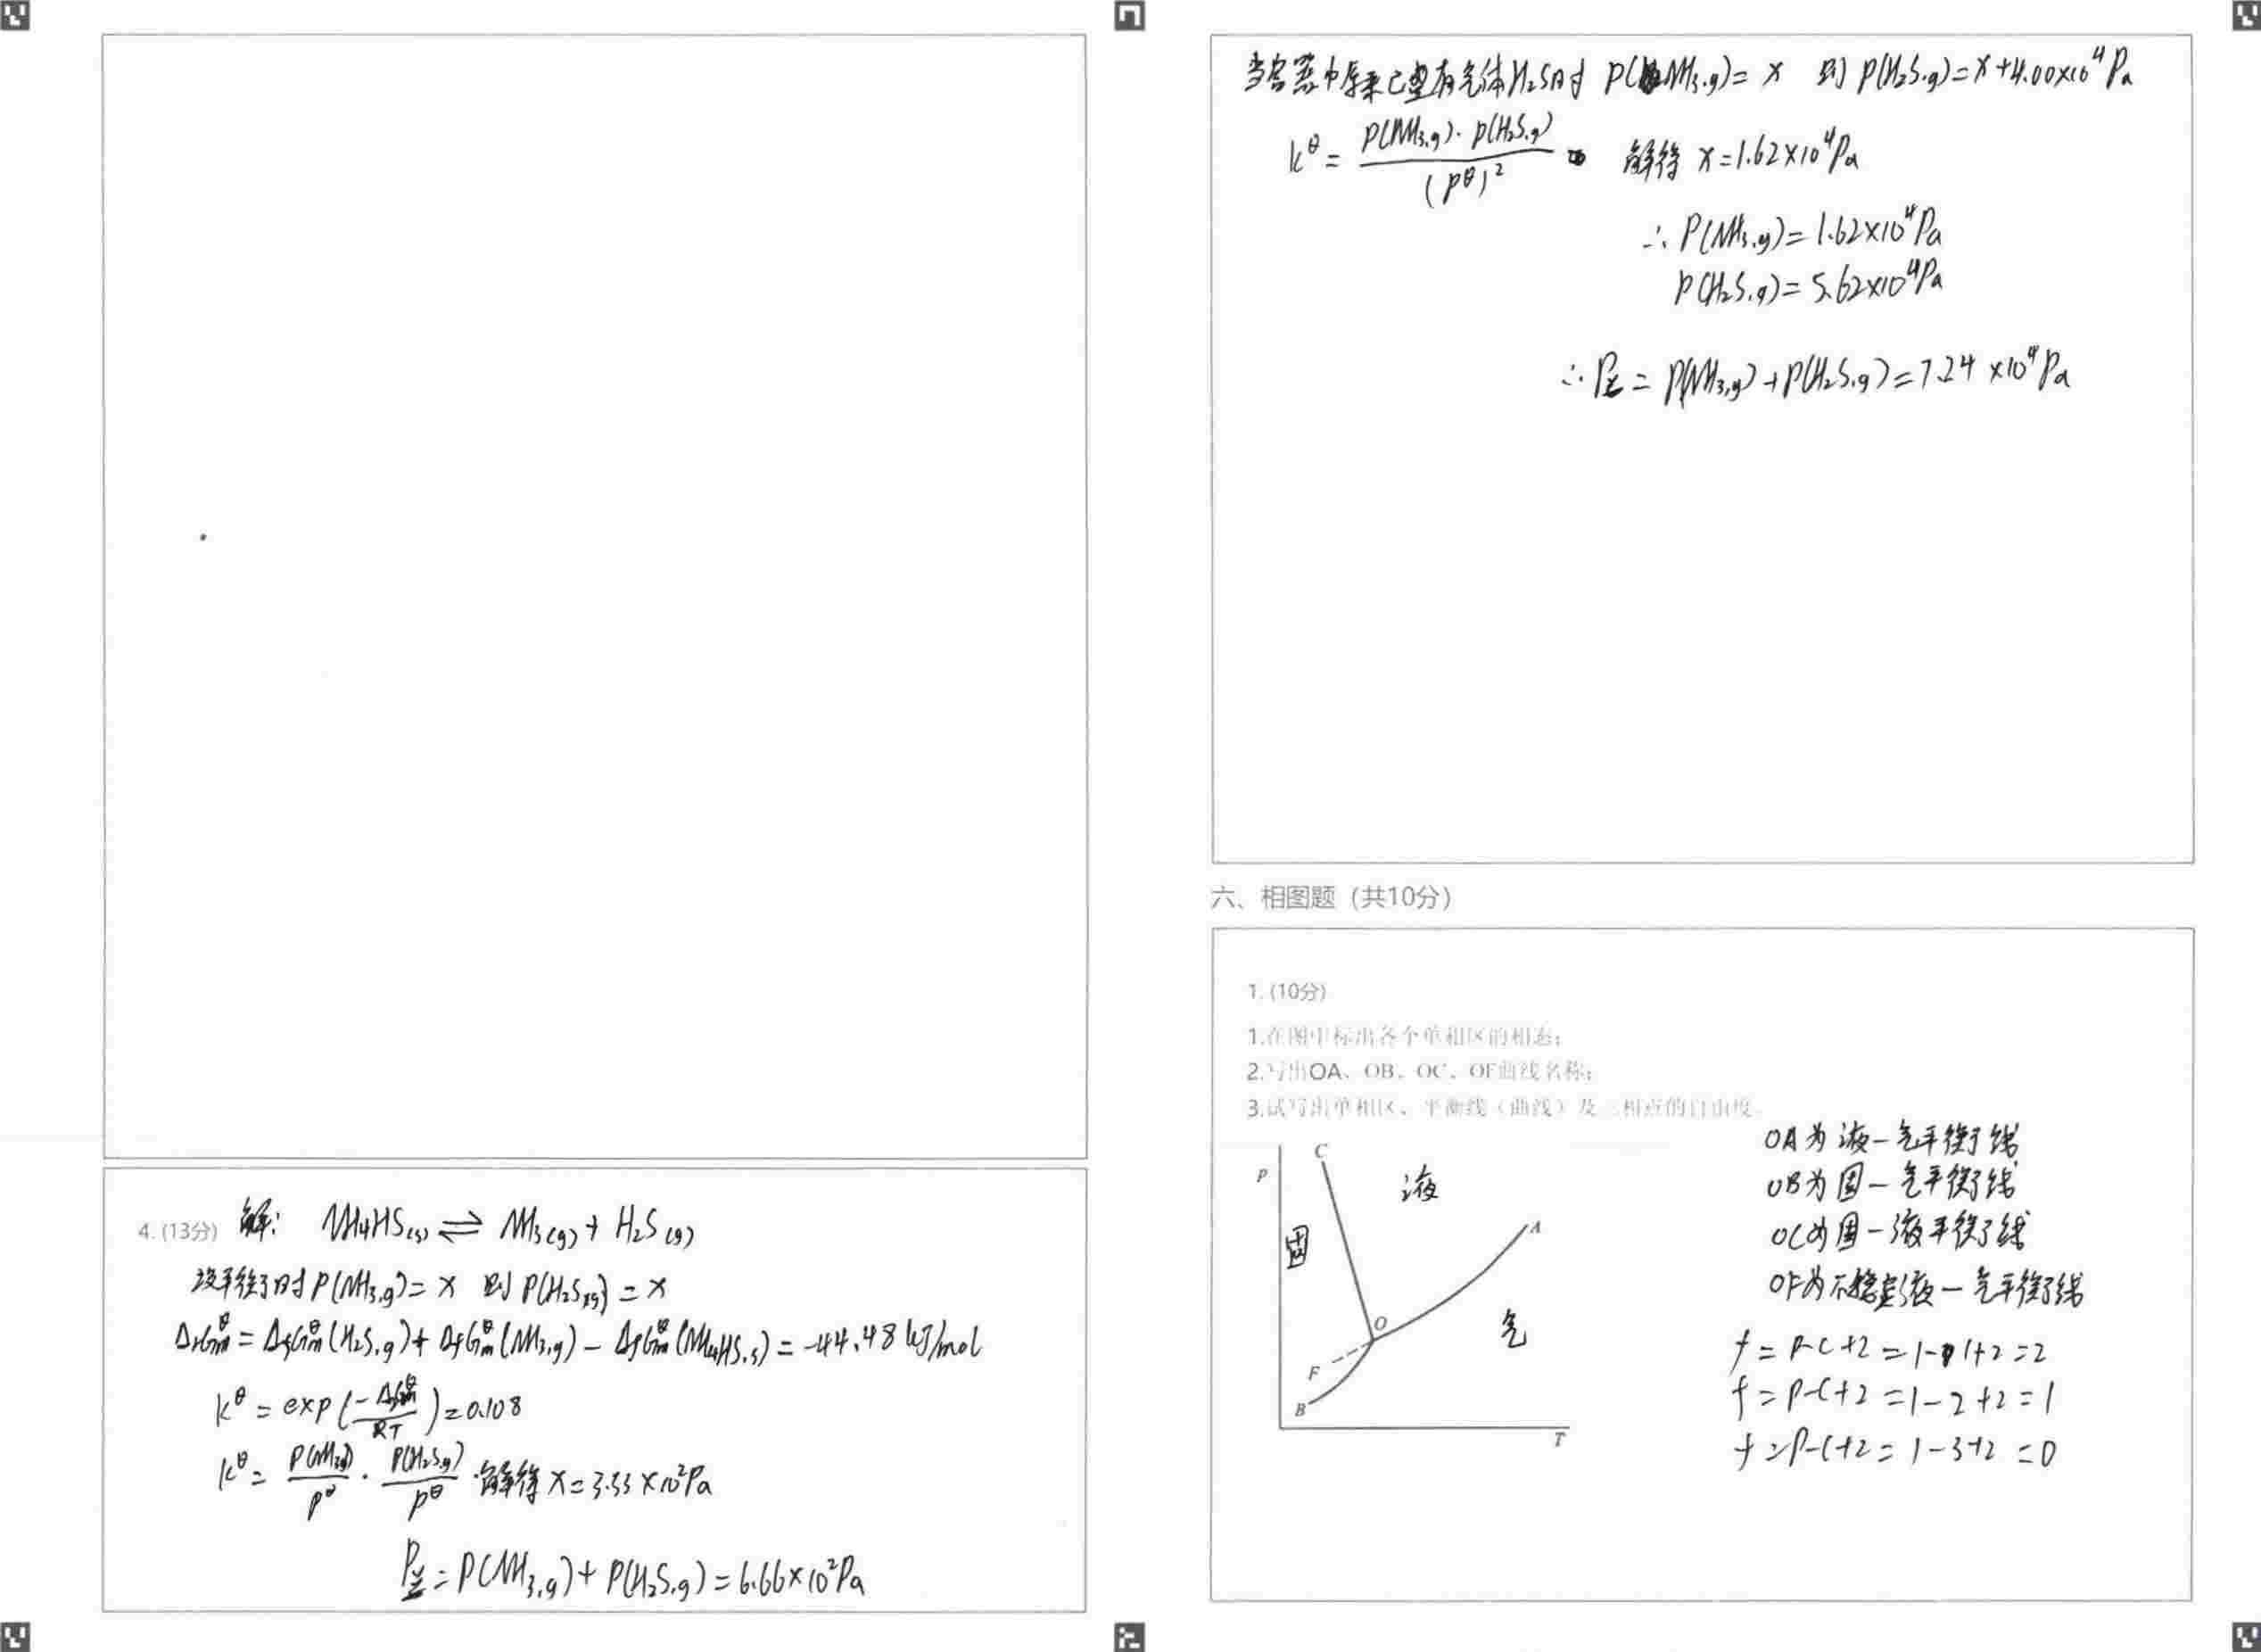 4. (13分) 解: NH₄HS(s) ⇌ NH₃(g) + H₂S(g)
设平衡时 P(NH₃,g) = x 则 P(H₂S,g) = x
ΔrGm^θ = ΔfGm^θ(H₂S,g) + ΔfGm^θ(NH₃,g) − ΔfGm^θ(NH₄HS,s) = -44.48 kJ/mol
K^θ = exp(-ΔrGm^θ/RT) = 0.108
K^θ = P(NH₃,g)/P^θ · P(H₂S,g)/P^θ · 解得 x = 3.33×10²Pa
P总 = P(NH₃,g) + P(H₂S,g) = 6.66×10²Pa
当容器中原来已有气体H₂S时 P(NH₃,g) = x 则 P(H₂S,g) = x+4.00×10⁴Pa
K^θ = P(NH₃,g)·P(H₂S,g)/(P^θ)² 解得 x = 1.62×10⁴Pa
∴ P(NH₃,g) = 1.62×10⁴Pa
P(H₂S,g) = 5.62×10⁴Pa
∴ P总 = P(NH₃,g) + P(H₂S,g) = 7.24×10⁴Pa
六、相图题 (共10分)
1. (10分)
1.在图中标出各个单相区的相态;
2.写出OA、OB、OC、OF曲线名称;
3.试写出单相区、平衡线（曲线）及三相点的自由度。
P
C
液
固
A
O
气
F
B
T
OA为液-气平衡线
OB为固-气平衡线
OC为固-液平衡线
OF为不稳定液-气平衡线
f = P-C+2 = 1-1+2 = 2
f = P-C+2 = 1-2+2 = 1
f = P-C+2 = 1-3+2 = 0